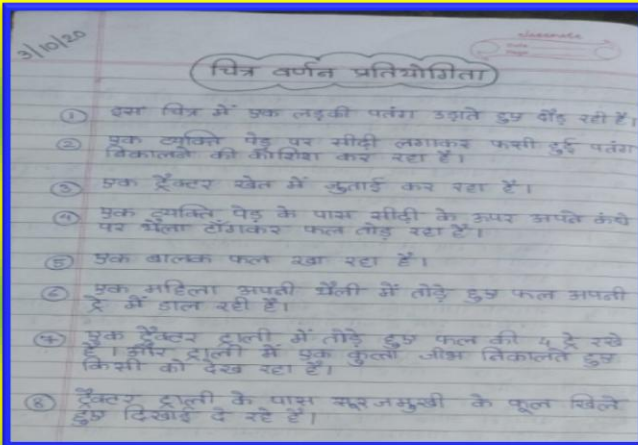 3/10/20
classmate
Date
Page
चित्र वर्णन प्रतियोगिता
① इस चित्र में एक लड़की पतंग उड़ाते हुए दौड़ रही है।
② एक व्यक्ति पेड़ पर सीढ़ी लगाकर फसी हुई पतंग
निकालने की कोशिश कर रहा है।
③ एक ट्रैक्टर खेत में जुताई कर रहा है।
④ एक व्यक्ति पेड़ के पास सीढ़ी के ऊपर अपने कंधे
पर थैला टाँगकर फल तोड़ रहा है।
⑤ एक बालक फल खा रहा है।
⑥ एक महिला अपनी थैली में तोड़े हुए फल अपनी
ट्रे में डाल रही है।
⑦ एक ट्रैक्टर ट्राली में तोड़े हुए फल की 4 ट्रे रखे
है। और ट्राली में एक कुत्ता जीभ निकालते हुए
किसी को देख रहा है।
⑧ ट्रैक्टर ट्राली के पास सूरजमुखी के फूल खिले
हुए दिखाई दे रहे है।